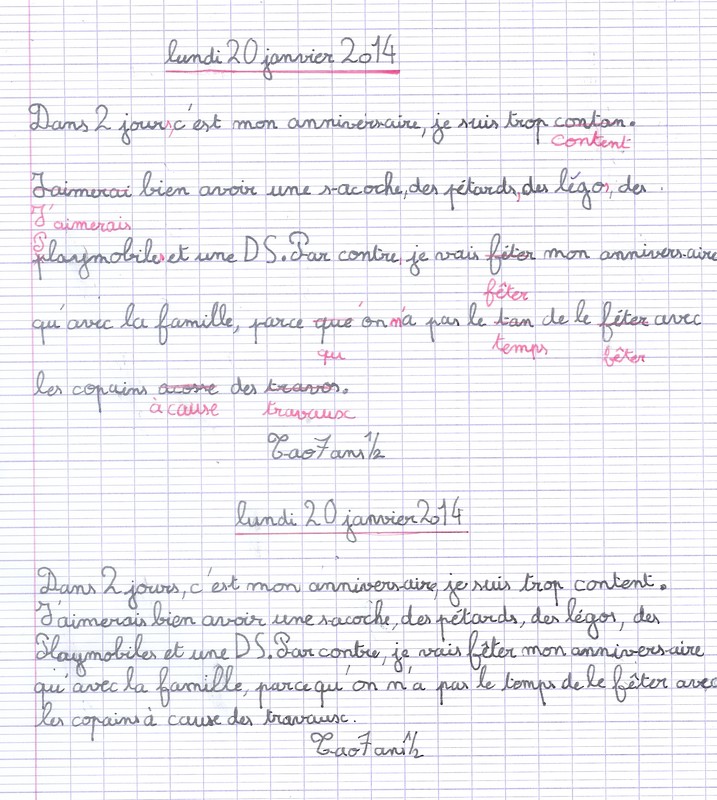 lundi 20 janvier 2014
Dans 2 jours, c'est mon anniversaire, je suis trop contan.
content
J'aimerai bien avoir une sacoche, des pétards, des légos, des
J'aimerais
Playmobiles et une DS. Par contre, je vais féter mon anniversaire
fêter
qu'avec la famille, parce que on n'a pas le tan de le féter avec
qu temps fêter
les copains acose des travos.
à cause travaux
Tao 7 ans 1/2
lundi 20 janvier 2014
Dans 2 jours, c'est mon anniversaire, je suis trop content.
J'aimerais bien avoir une sacoche, des pétards, des légos, des
Playmobiles et une DS. Par contre, je vais fêter mon anniversaire
qu'avec la famille, parce qu'on n'a pas le temps de le fêter avec
les copains à cause des travaux.
Tao 7 ans 1/2